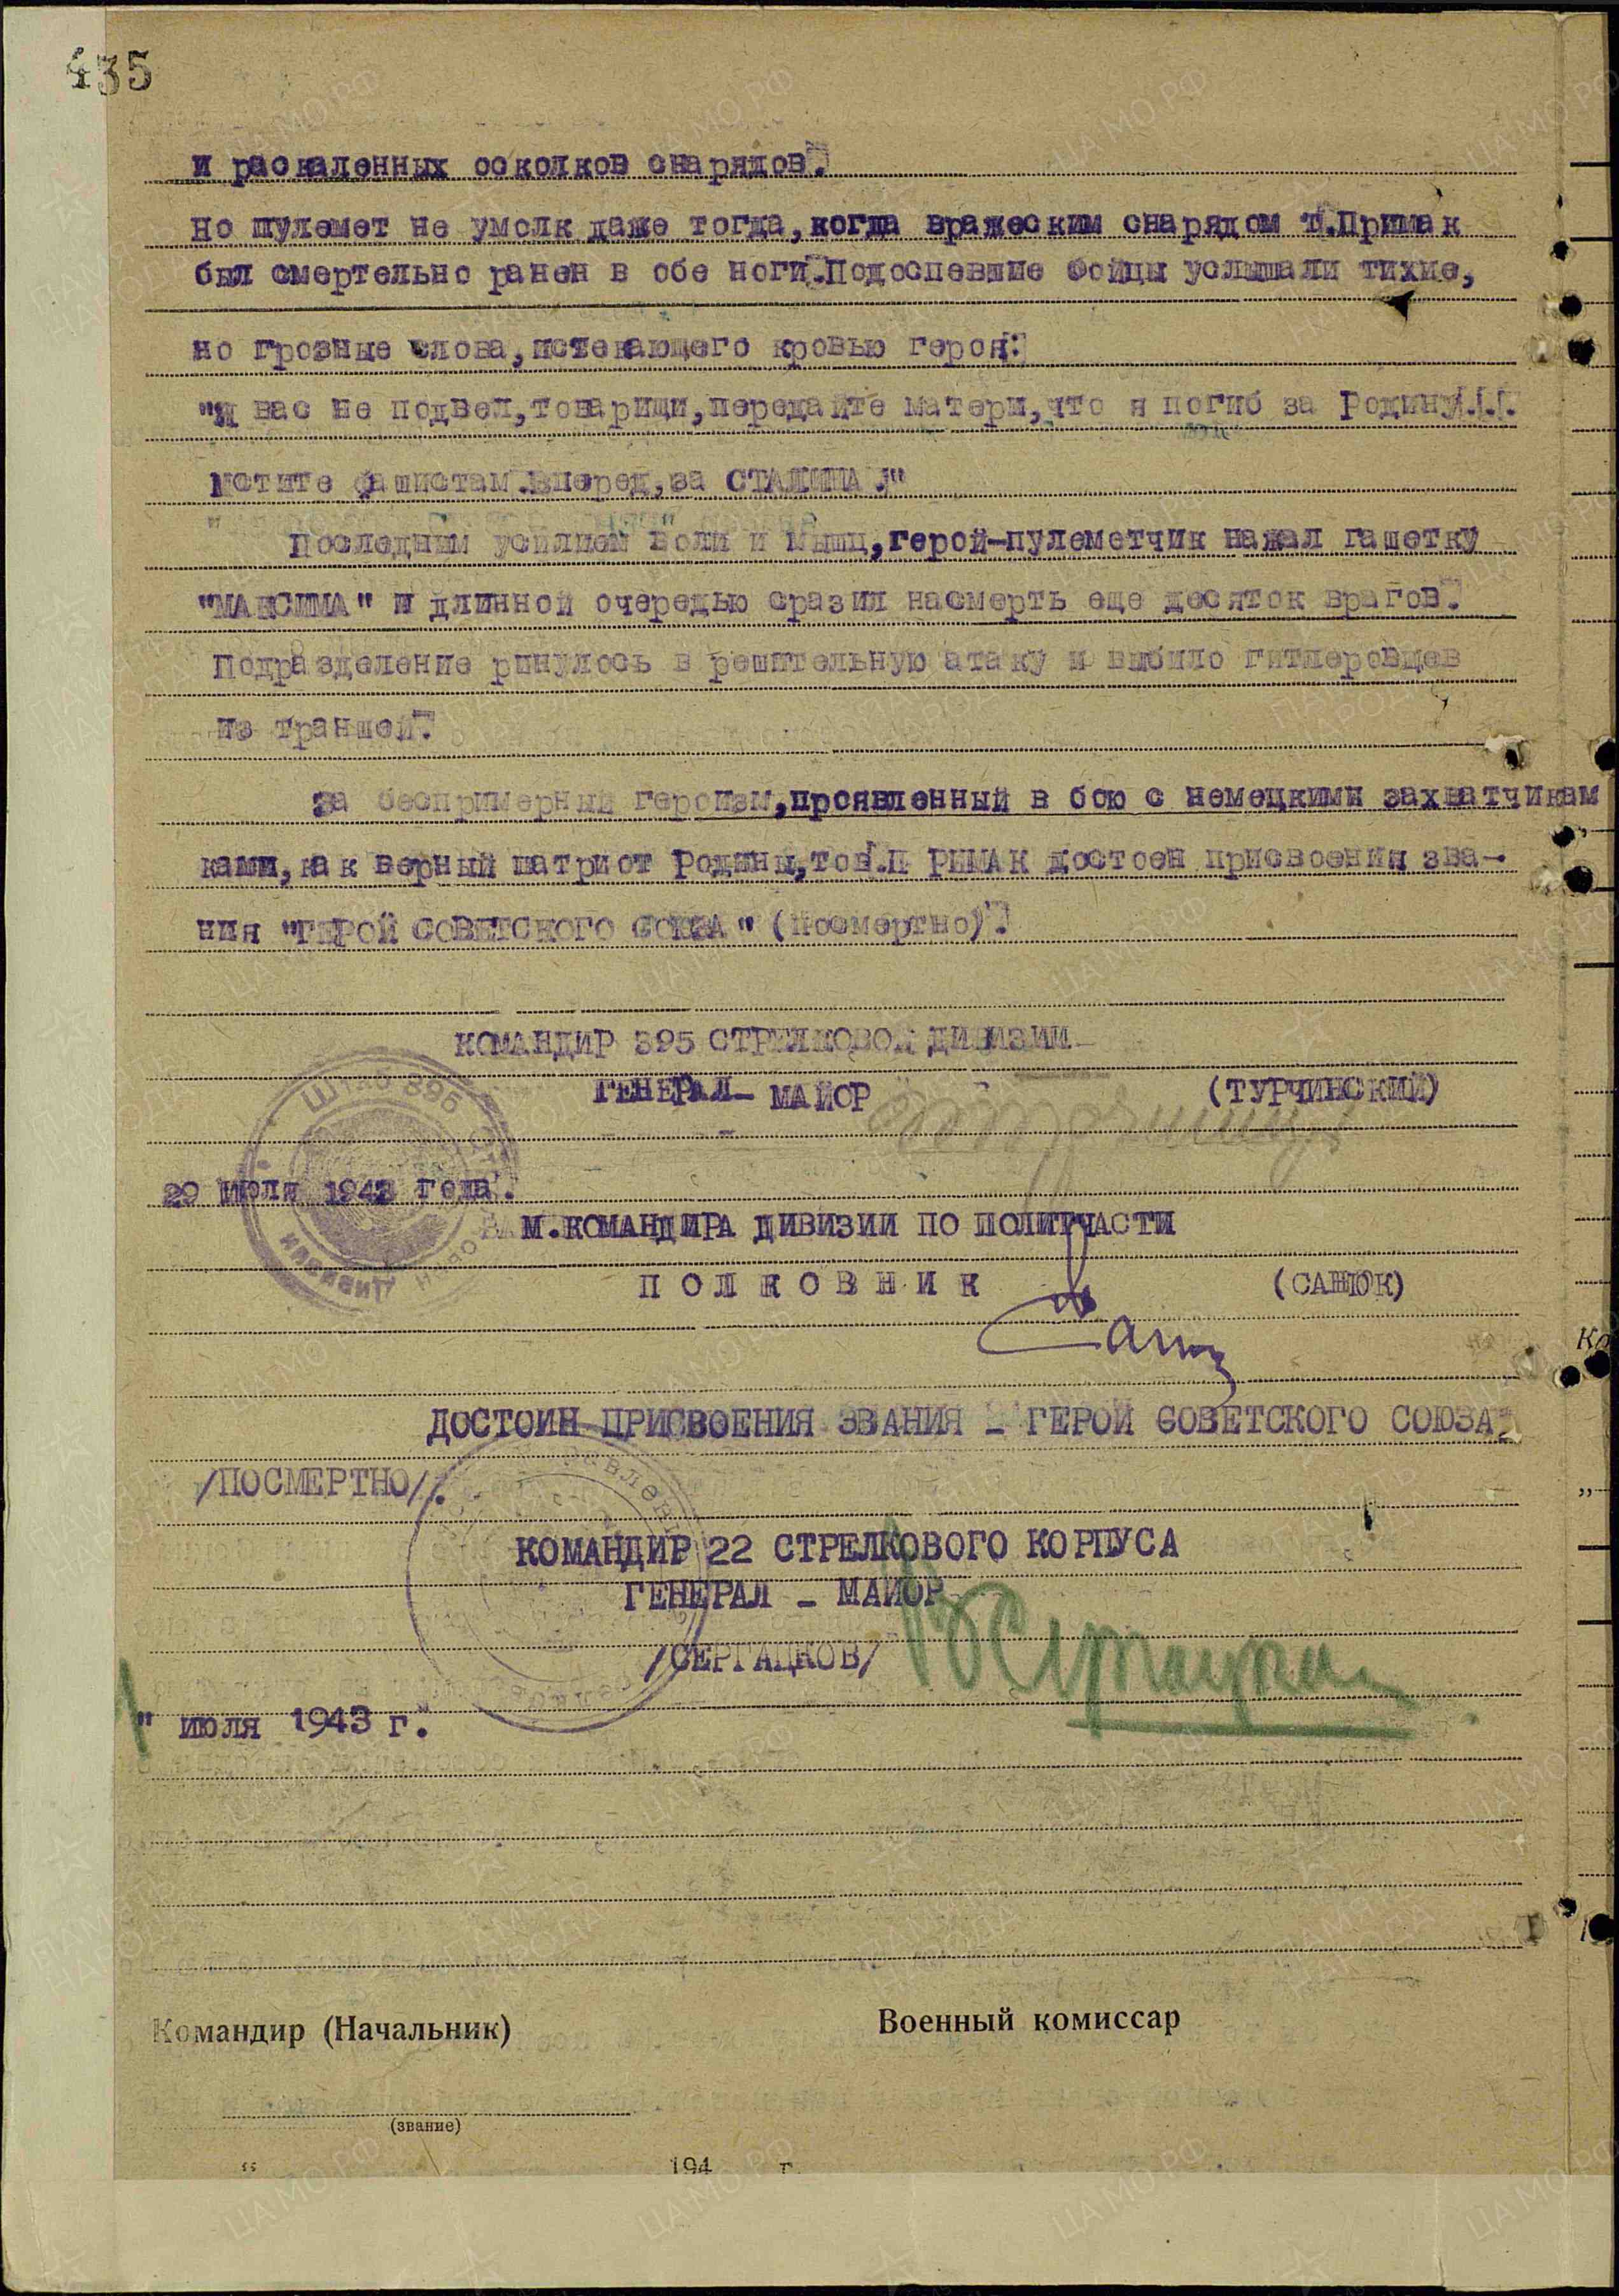 435
и раскаленных осколков снарядов.
Но пулемет не умолк даже тогда,когда вражеским снарядом т.Примак
был смертельно ранен в обе ноги.Подоспевшие бойцы услышали тихие,
но грозные слова,истекающего кровью героя:
"Я вас не подвел,товарищи,передайте матери,что я погиб за Родину!!!
Мстите фашистам.Вперед,за СТАЛИНА!"
Последним усилием воли и мышц,герой-пулеметчик нажал гашетку
"МАКСИМА" и длинной очередью сразил насмерть еще десяток врагов.
Подразделение ринулось в решительную атаку и выбило гитлеровцев
из траншей.
За беспримерный героизм,проявленный в бою с немецкими захватчикам
ками,как верный патриот Родины,тов.П РИМАК достоен присвоения зва-
ния "ГЕРОЙ СОВЕТСКОГО СОЮЗА" (посмертно).
КОМАНДИР 395 СТРЕЛКОВОЙ ДИВИЗИИ
ГЕНЕРАЛ- МАЙОР (ТУРЧИНСКИЙ)
Штаб 395
дивизии
29 июля 1943 года.
ЗАМ.КОМАНДИРА ДИВИЗИИ ПО ПОЛИТЧАСТИ
П О Л К О В Н И К (САНЮК)
ДОСТОИН ПРИСВОЕНИЯ ЗВАНИЯ - ГЕРОЙ СОВЕТСКОГО СОЮЗА
/ПОСМЕРТНО/.
КОМАНДИР 22 СТРЕЛКОВОГО КОРПУСА
ГЕНЕРАЛ - МАЙОР
/СЕРГАЦКОВ/
" июля 1943 г.
Командир (Начальник) Военный комиссар
(звание)
" 194 г.